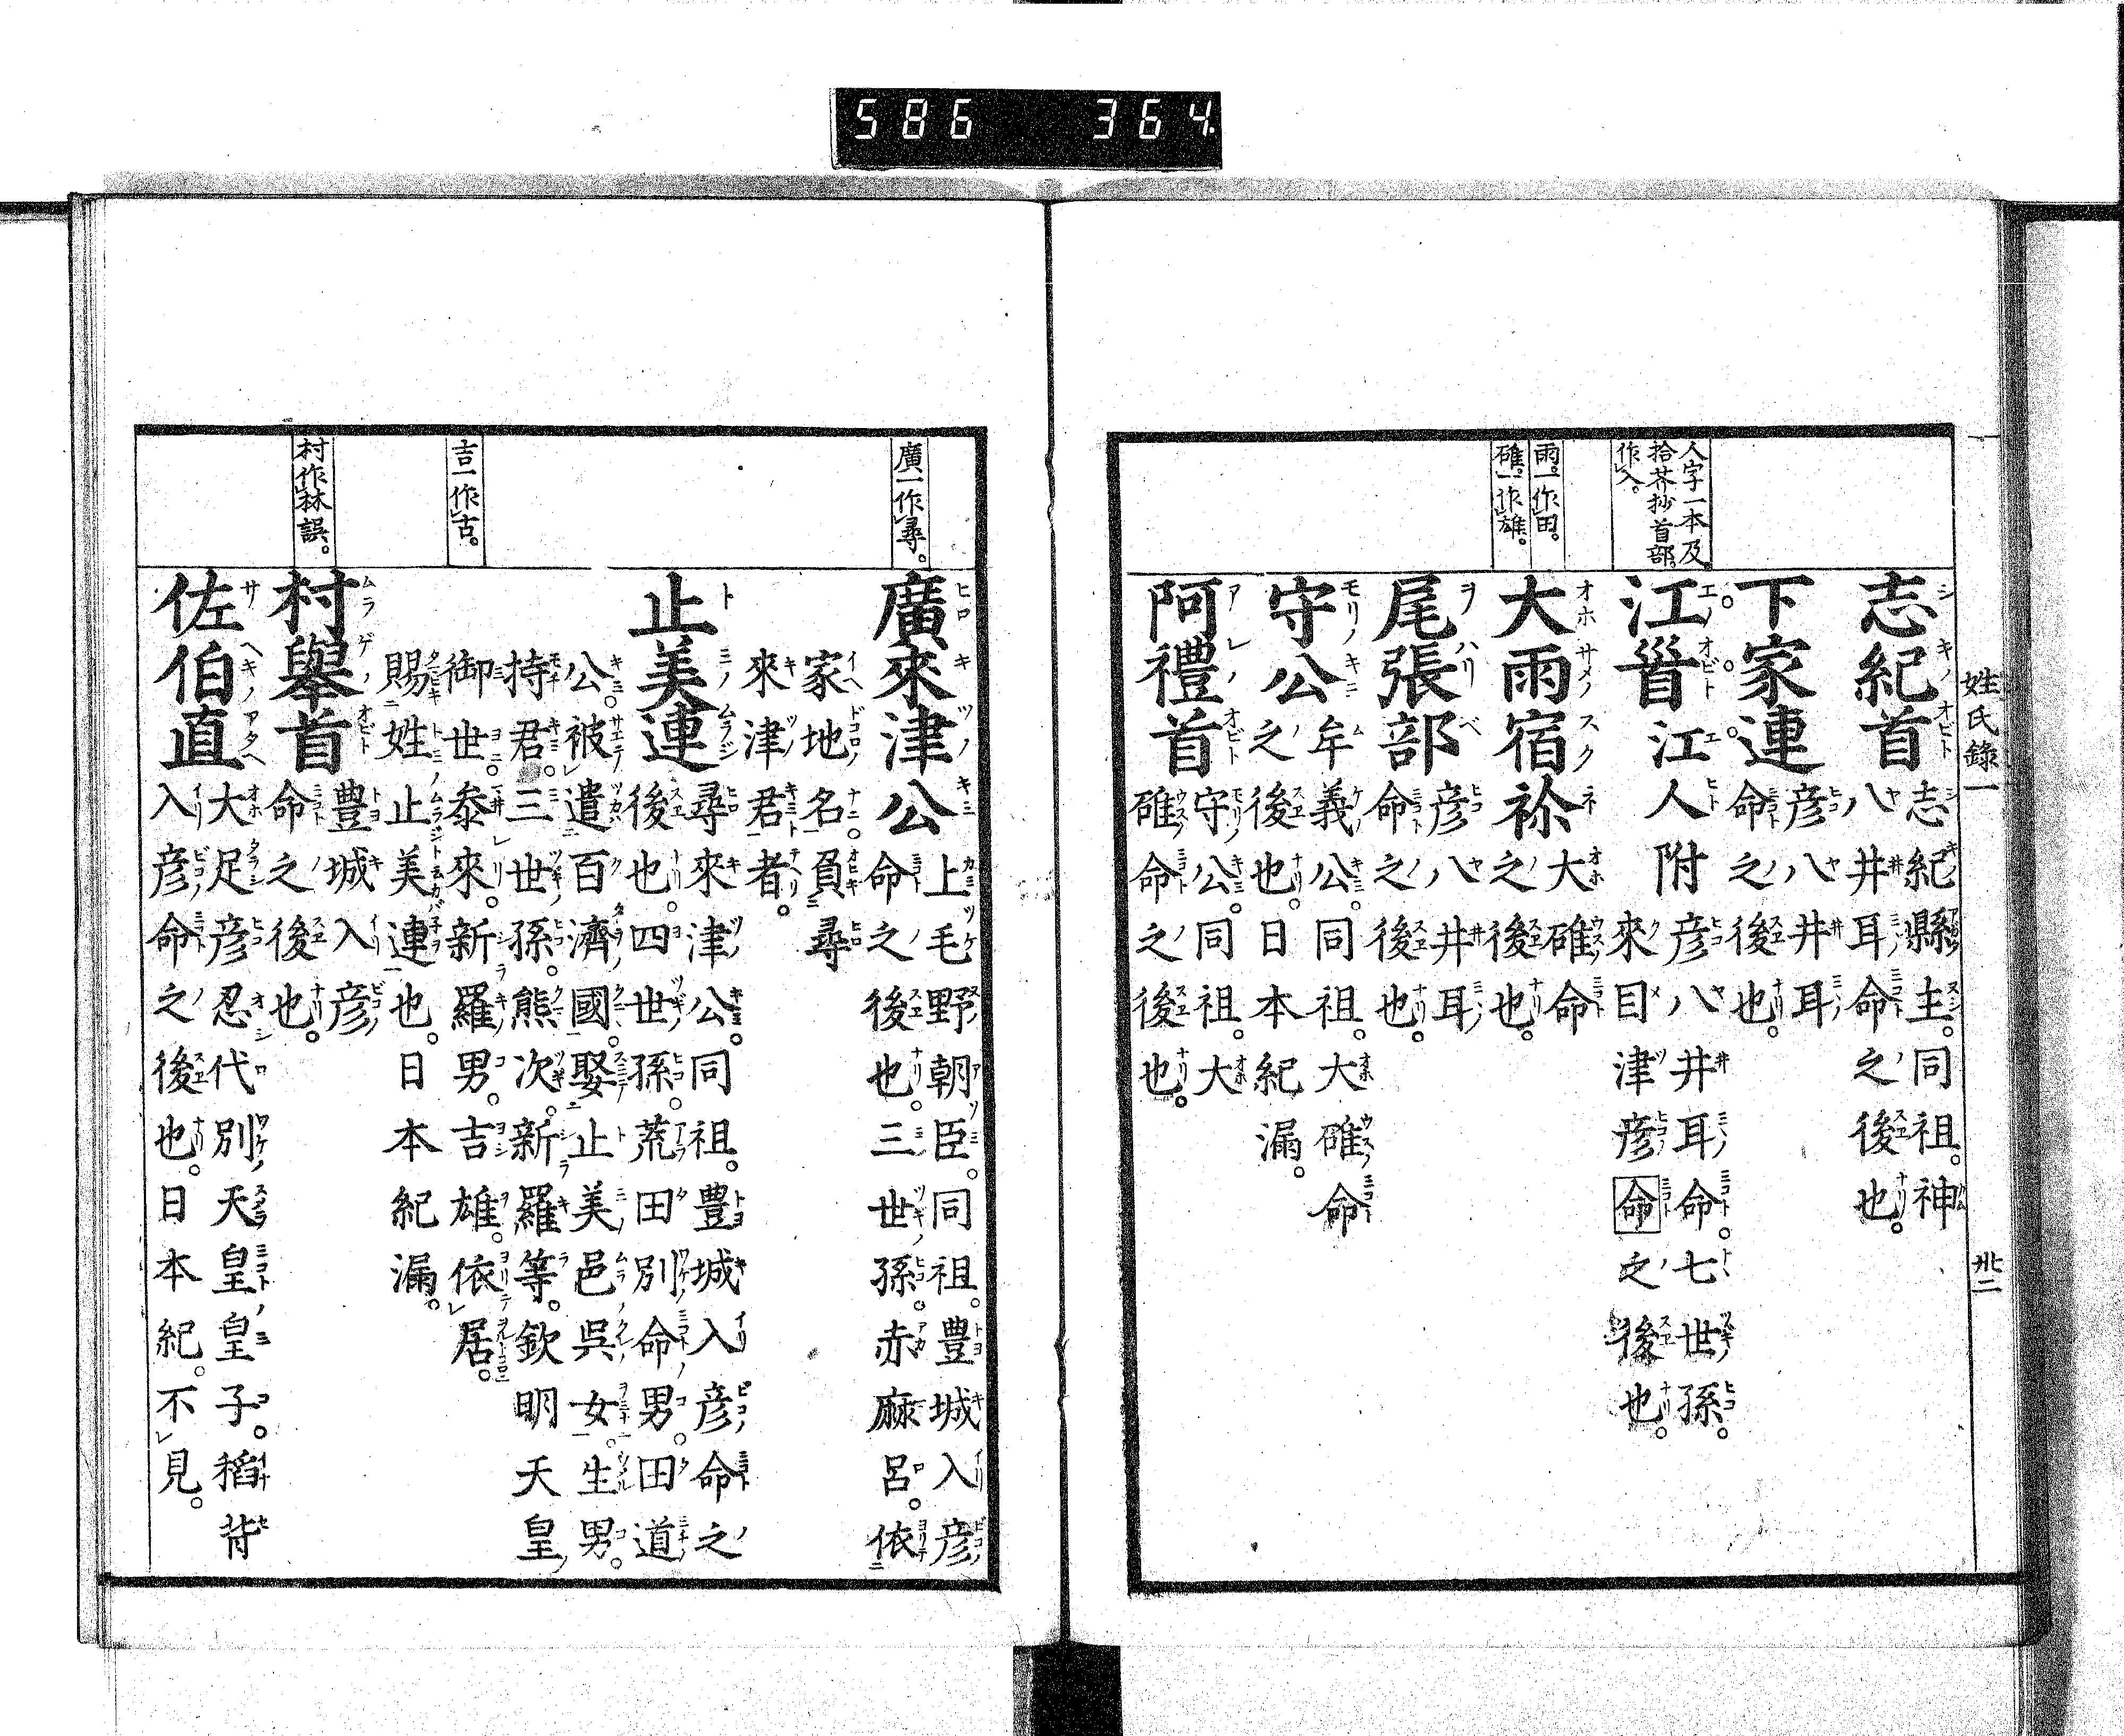 586 364
姓氏錄一
卅二
人字一本及
拾芥抄首部
作入。
雨。一作田。
碓。一作雄。
志紀首
志紀縣主。同祖。神
八井耳命之後也。
下家連
彦八井耳
命之後也。
江首
江人附
彦八井耳命。七世孫。
來目津彦命之後也。
大雨宿祢
大碓命
之後也。
尾張部
彦八井耳
命之後也。
守公
牟義公同祖。大碓命
之後也。日本紀漏。
阿禮首
守公。同祖。大
碓命之後也。
廣一作尋。
吉一作古。
村作林誤。
廣來津公
上毛野朝臣。同祖。豊城入彦
命之後也。三世孫。赤麻呂。依
家地名。負尋
來津君者。
止美連
尋來津公。同祖。豊城入彦命之
後也。四世孫。荒田別命男。田道
公。被遣百濟國。娶止美邑吳女。生男。
持君。三世孫。熊次。新羅等。欽明天皇
御世。参來。新羅男。吉雄。依居。
賜姓止美連也。日本紀漏。
村舉首
豊城入彦
命之後也。
佐伯直
大足彦忍代別天皇皇子。稻背
入彦命之後也。日本紀。不見。